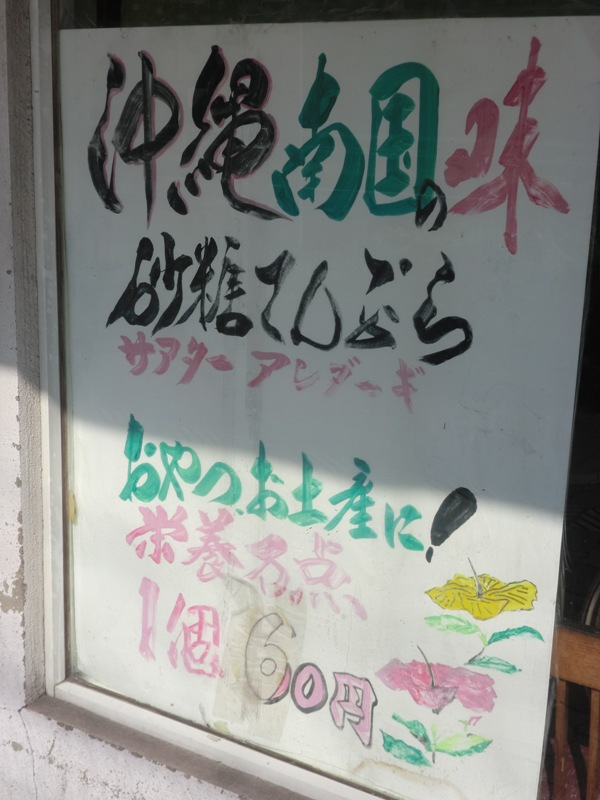 沖縄南国の味
砂糖てんぷら
サアターアンダーギ
おやつ、お土産に!
栄養万点
1個60円